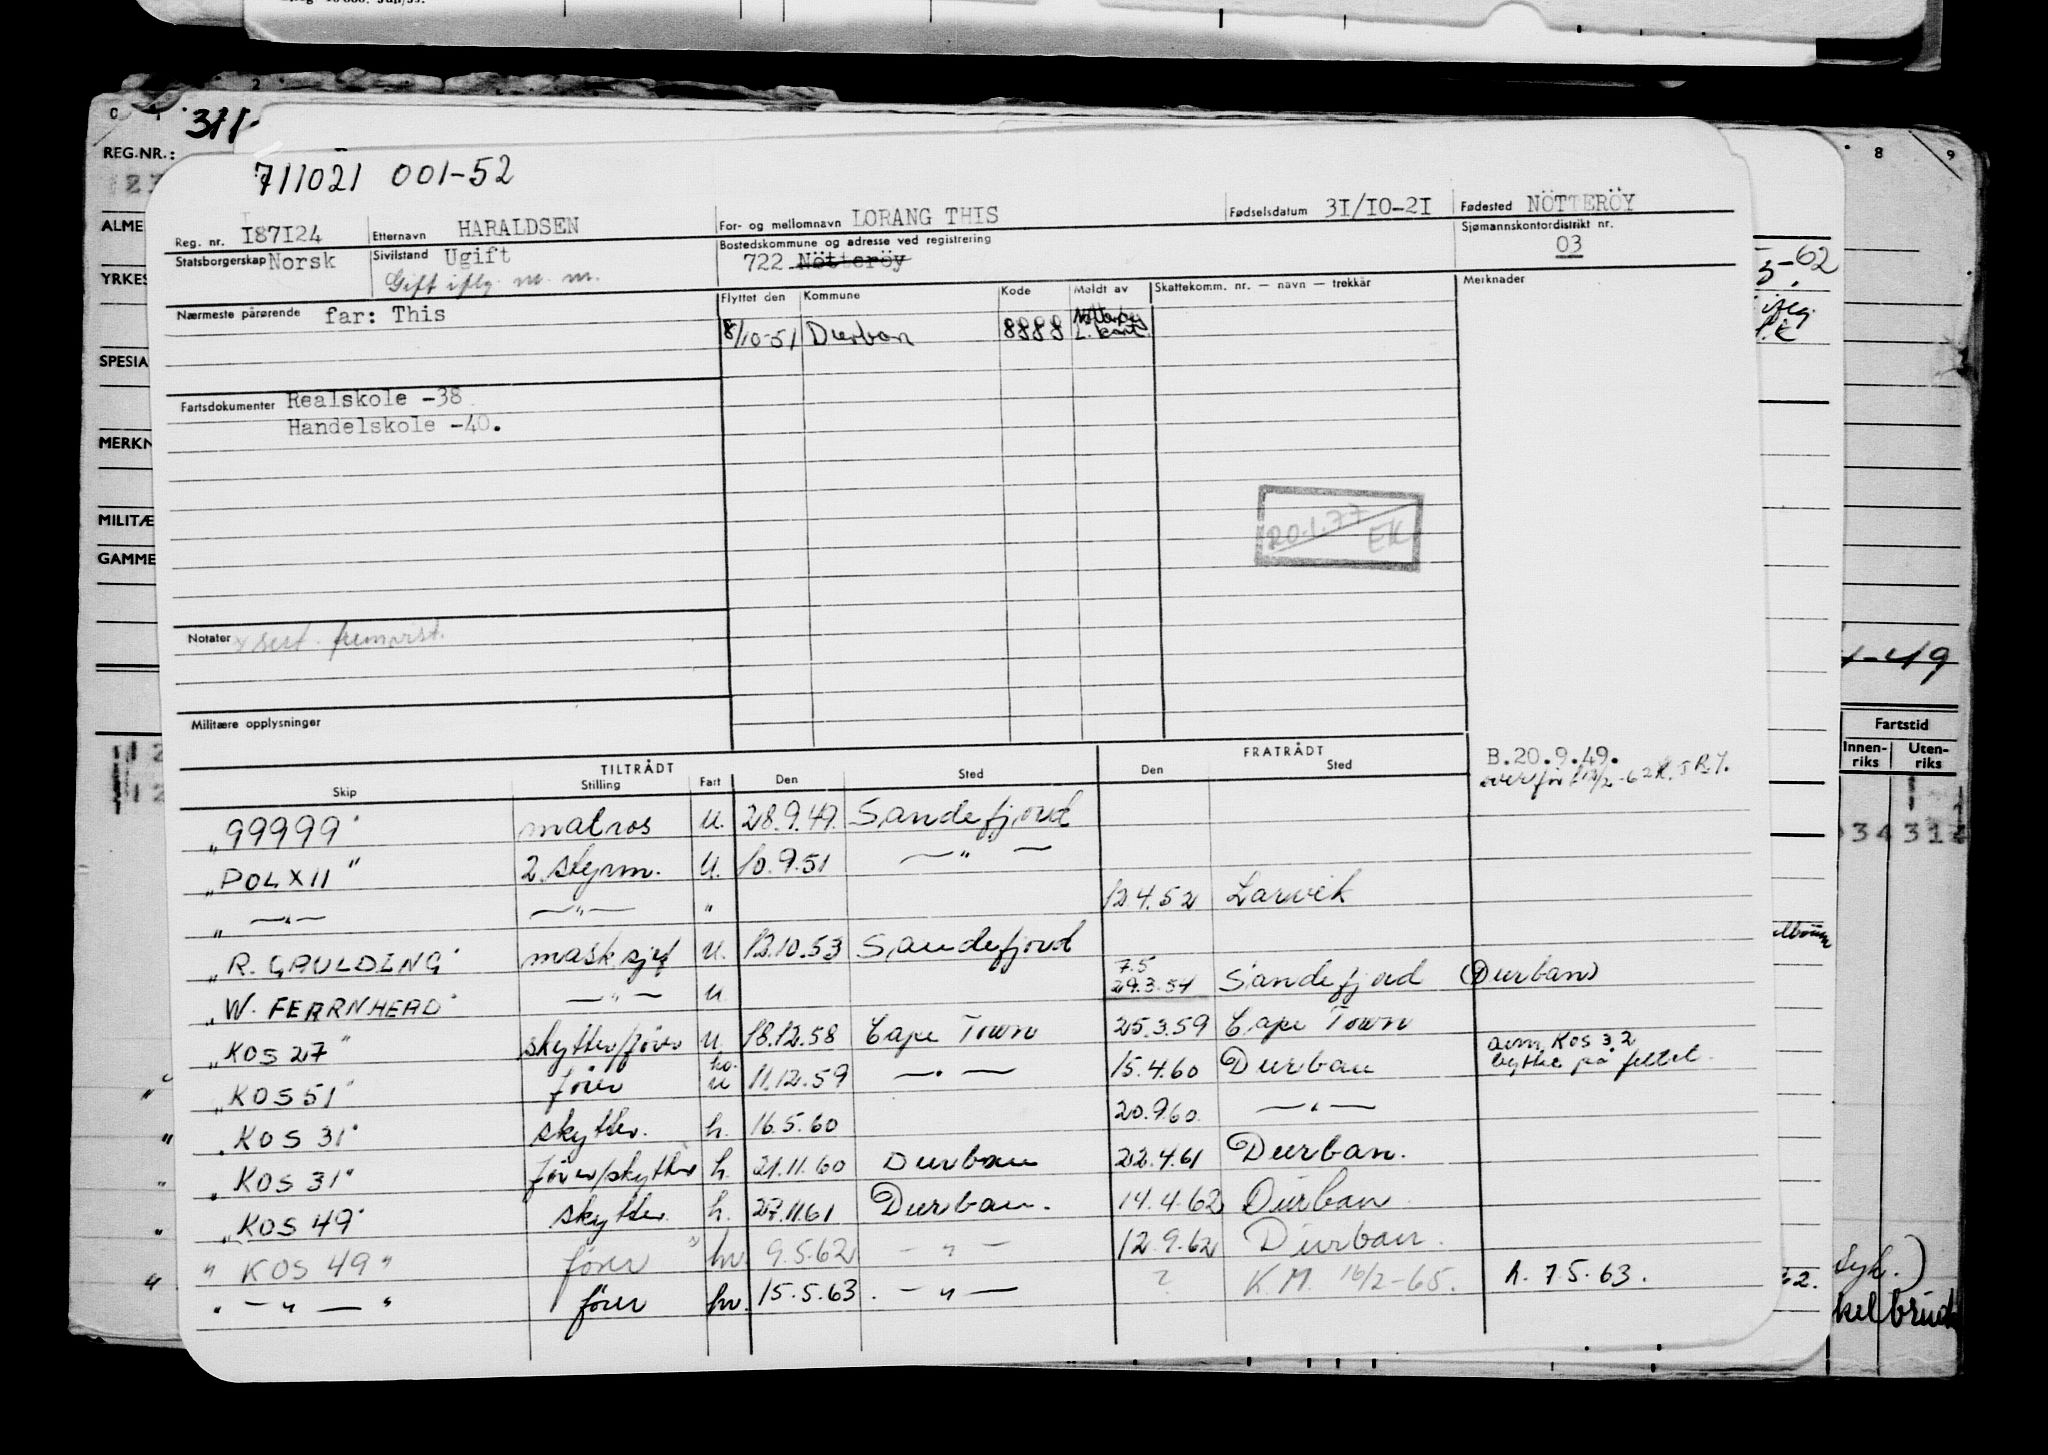 711021 001-52
Reg. nr. I87I24 Etternavn HARALDSEN For- og mellomnavn LORANG THIS Fødselsdatum 3I/IO-2I Fødested NÖTTERÖY
Statsborgerskap Norsk Sivilstand Ugift Bostedskommune og adresse ved registrering 722 Nötteröy Sjømannskontordistrikt nr. 03
Gift iflg. m. m.
Nærmeste pårørende far: This
Flyttet den Kommune Kode Meldt av Skattekomm. nr. — navn — trekkår Merknader
8/10-51 Durban 8888
Fartsdokumenter Realskole -38
Handelskole -40.
20.1.77 EK
Notater
Militære opplysninger
TILTRÅDT FRATRÅDT B.20.9.49.
Skip Stilling Fart Den Sted Den Sted
„99999" matros u. 28.9.49. Sandefjord
„POL XII" 2. styrm. u. 10.9.51 — " —
„ — " — — " — " 12.4.52 Larvik
„R. GAULDING" mask sjef u. 13.10.53 Sandefjord
„W. FEARNHEAD" — " — u 7.5 29.3.54 Sandefjord (Durban)
„KOS 27" skytter/fører u. 18.12.58 Cape Town 25.3.59 Cape Town
„KOS 51" fører u 11.12.59 — " — 15.4.60 Durban KOS 32 bytte på feltet.
„KOS 31" skytter. h. 16.5.60 20.9.60. — " —
„KOS 31" fører/skytter h. 21.11.60 Durban 22.4.61 Durban.
„KOS 49" skytter h. 27.11.61 Durban. 14.4.62 Durban
" KOS 49 " fører hv. 9.5.62 — " — 12.9.62 Durban.
" — " — " fører hv. 15.5.63. — " — ? K.M. 16/2-65. h. 7.5.63.
REG.NR.:
ALME
YRKES
SPESIA
MERKN
MILITÆ
GAMME
8 9
5-62
-49
Fartstid
Innen-riks Uten-riks
34 31
62.
syk.)